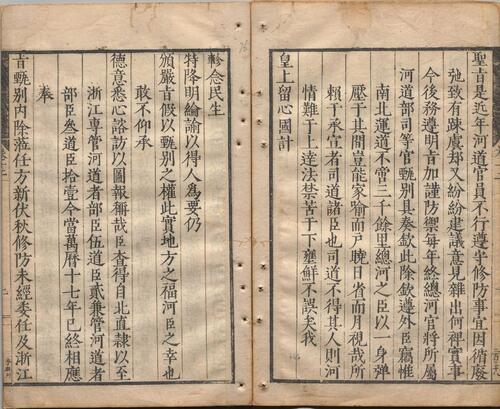 聖旨是近年河道官員不行遵守修防事宜因循廢
弛致有疎虞却又紛紛建議意見雜出何裨實事
今後務遵明旨加謹防禦每年終總河官將所屬
河道部司等官甄別具奏欽此除欽遵外臣竊惟
南北運道不啻三千餘里總河之臣以一身彈
壓于其間豈能家喻而戶曉日省而月視哉所
賴于承宣者司道諸臣也司道不得其人則河
情難于上達法禁苦于下壅鮮不誤矣我
皇上留心國計
軫念民生
特降明綸諭以得人為要仍
頒嚴旨假以甄別之權此實地方之福河臣之幸也
敢不仰承
德意悉心諮訪以圖報稱哉臣查得自北直隸以至
浙江專管河道者部臣伍道臣貳兼管河道者
部臣叁道臣拾壹今當萬曆十七年已終相應
奉
旨甄別內除蒞任方新伏秋修防未經委任及浙江